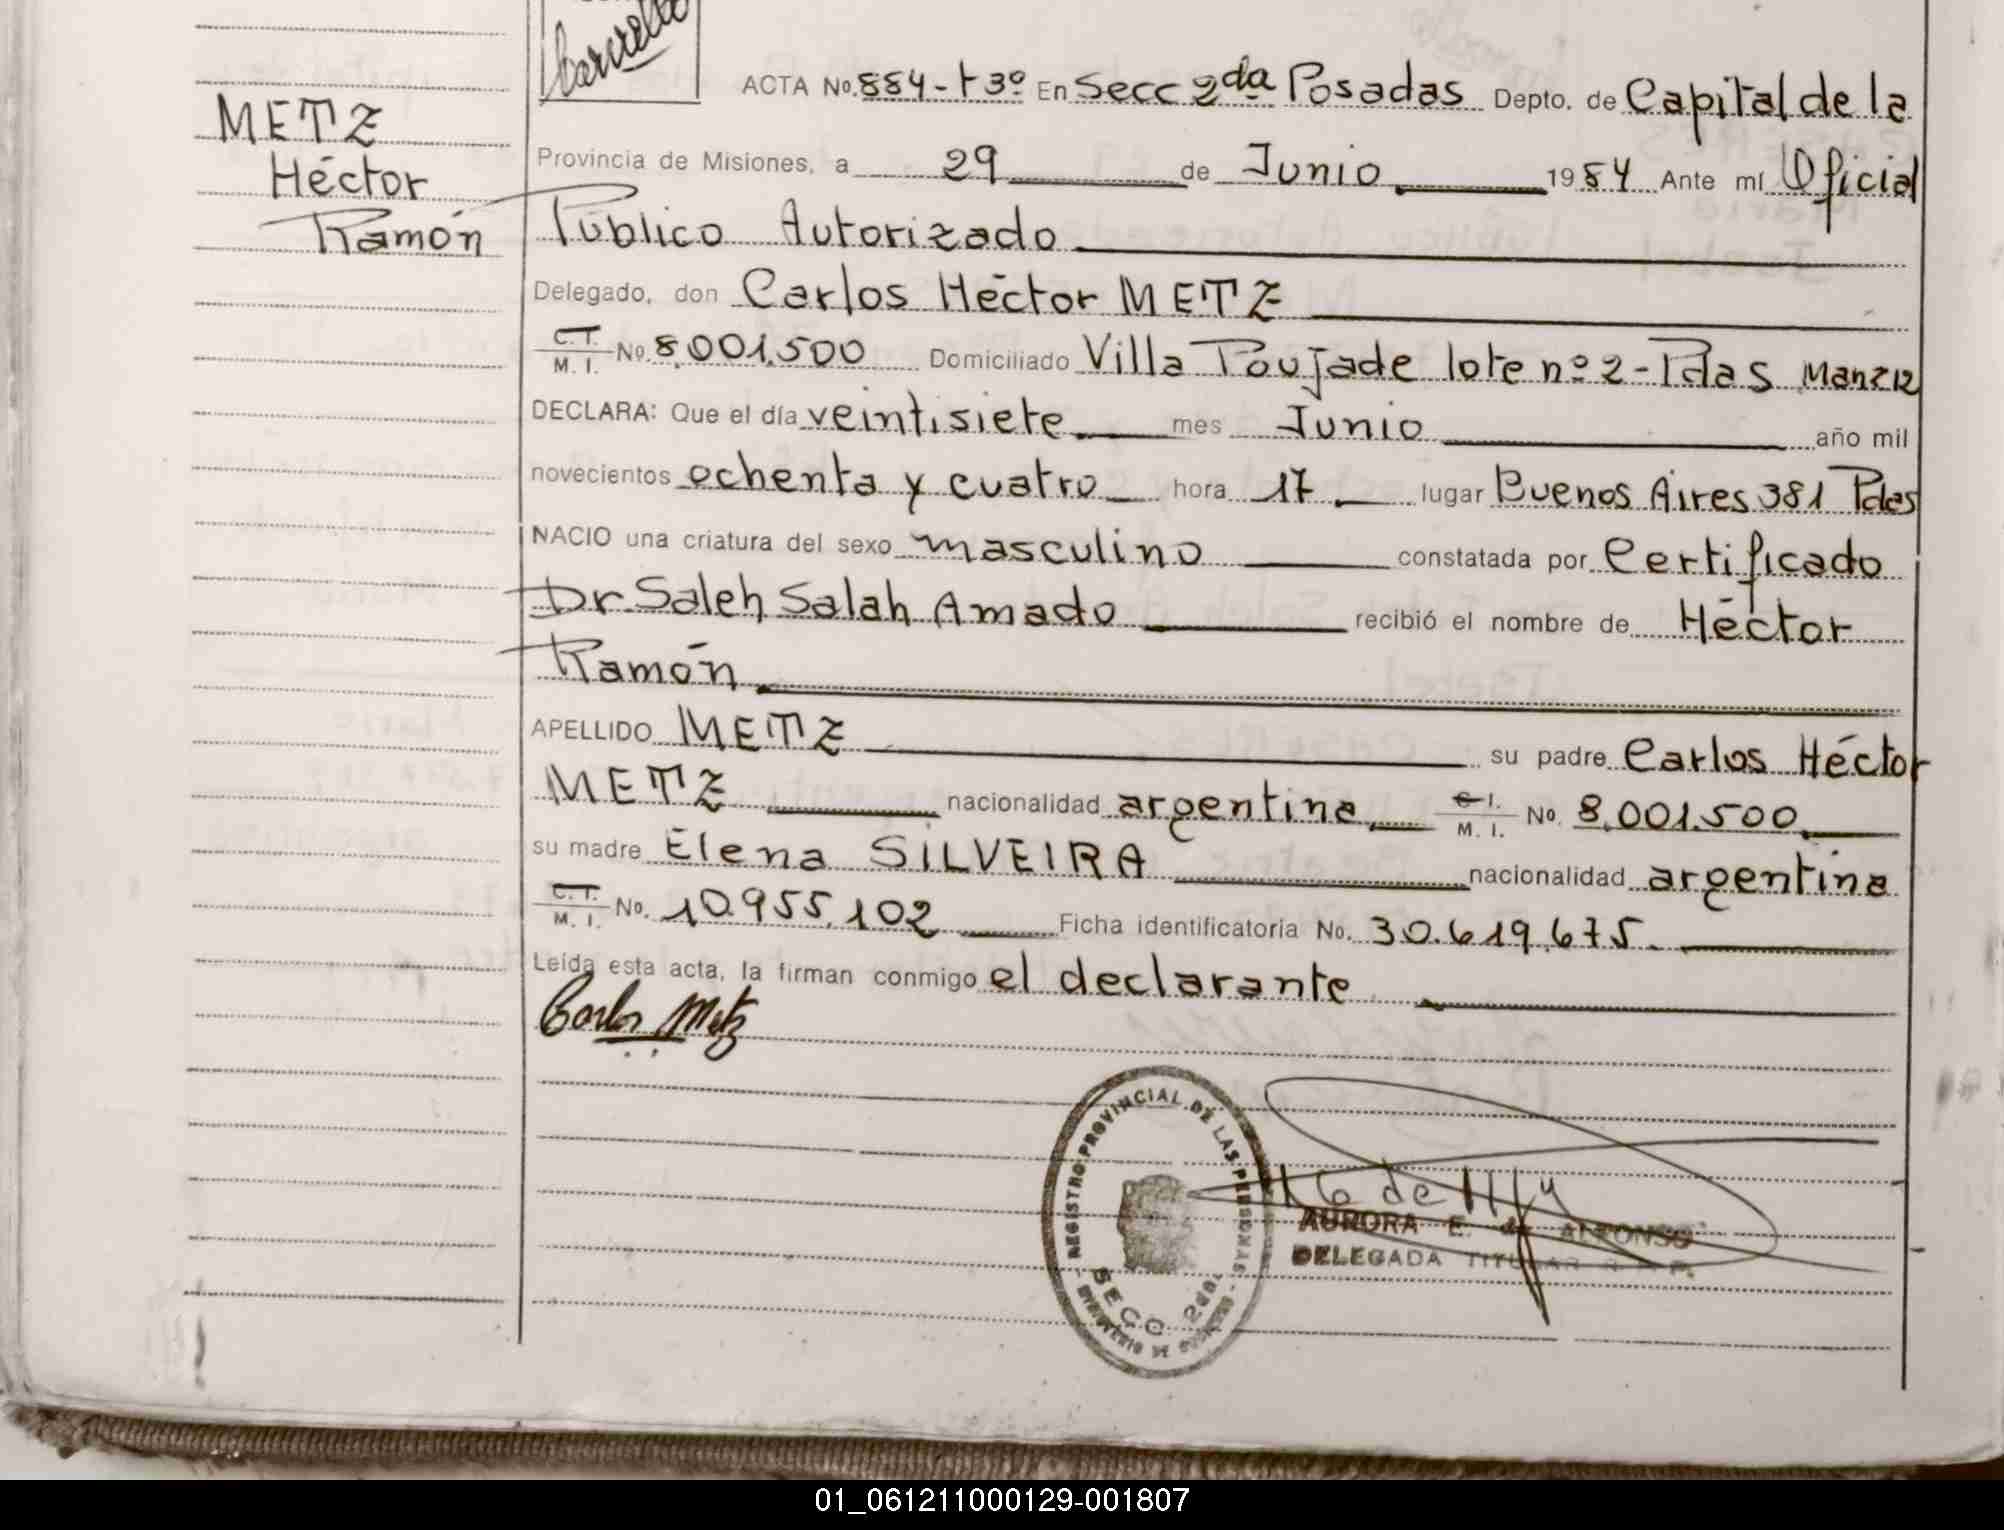 ACTA No. 884-t3º En Secc 2da Posadas Depto. de Capital de la
METZ
Héctor
Ramón
Provincia de Misiones, a 29 de Junio 1984 Ante mí Oficial
Público Autorizado
Delegado, don Carlos Héctor METZ
C.I. M. I. No. 8.001.500 Domiciliado Villa Poujade lote nº 2-Pdas Manz 12
DECLARA: Que el día veintisiete mes Junio año mil
novecientos ochenta y cuatro hora 17 lugar Buenos Aires 381 Pdas
NACIO una criatura del sexo masculino constatada por Certificado
Dr Saleh Salah Amado recibió el nombre de Héctor
Ramón
APELLIDO METZ su padre Carlos Héctor
METZ nacionalidad argentina C.I. M. I. No. 8.001.500
su madre Elena SILVEIRA nacionalidad argentina
C.I. M. I. No. 10.955.102 Ficha identificatoria No. 30.619.675.
Leída esta acta, la firman conmigo el declarante
Carlos Metz
REGISTRO PROVINCIAL DE LAS PERSONAS
MINISTERIO DE GOBIERNO
SECC 2da
AURORA E. de ALFONSO
DELEGADA TITULAR R. P. P.
01_061211000129-001807